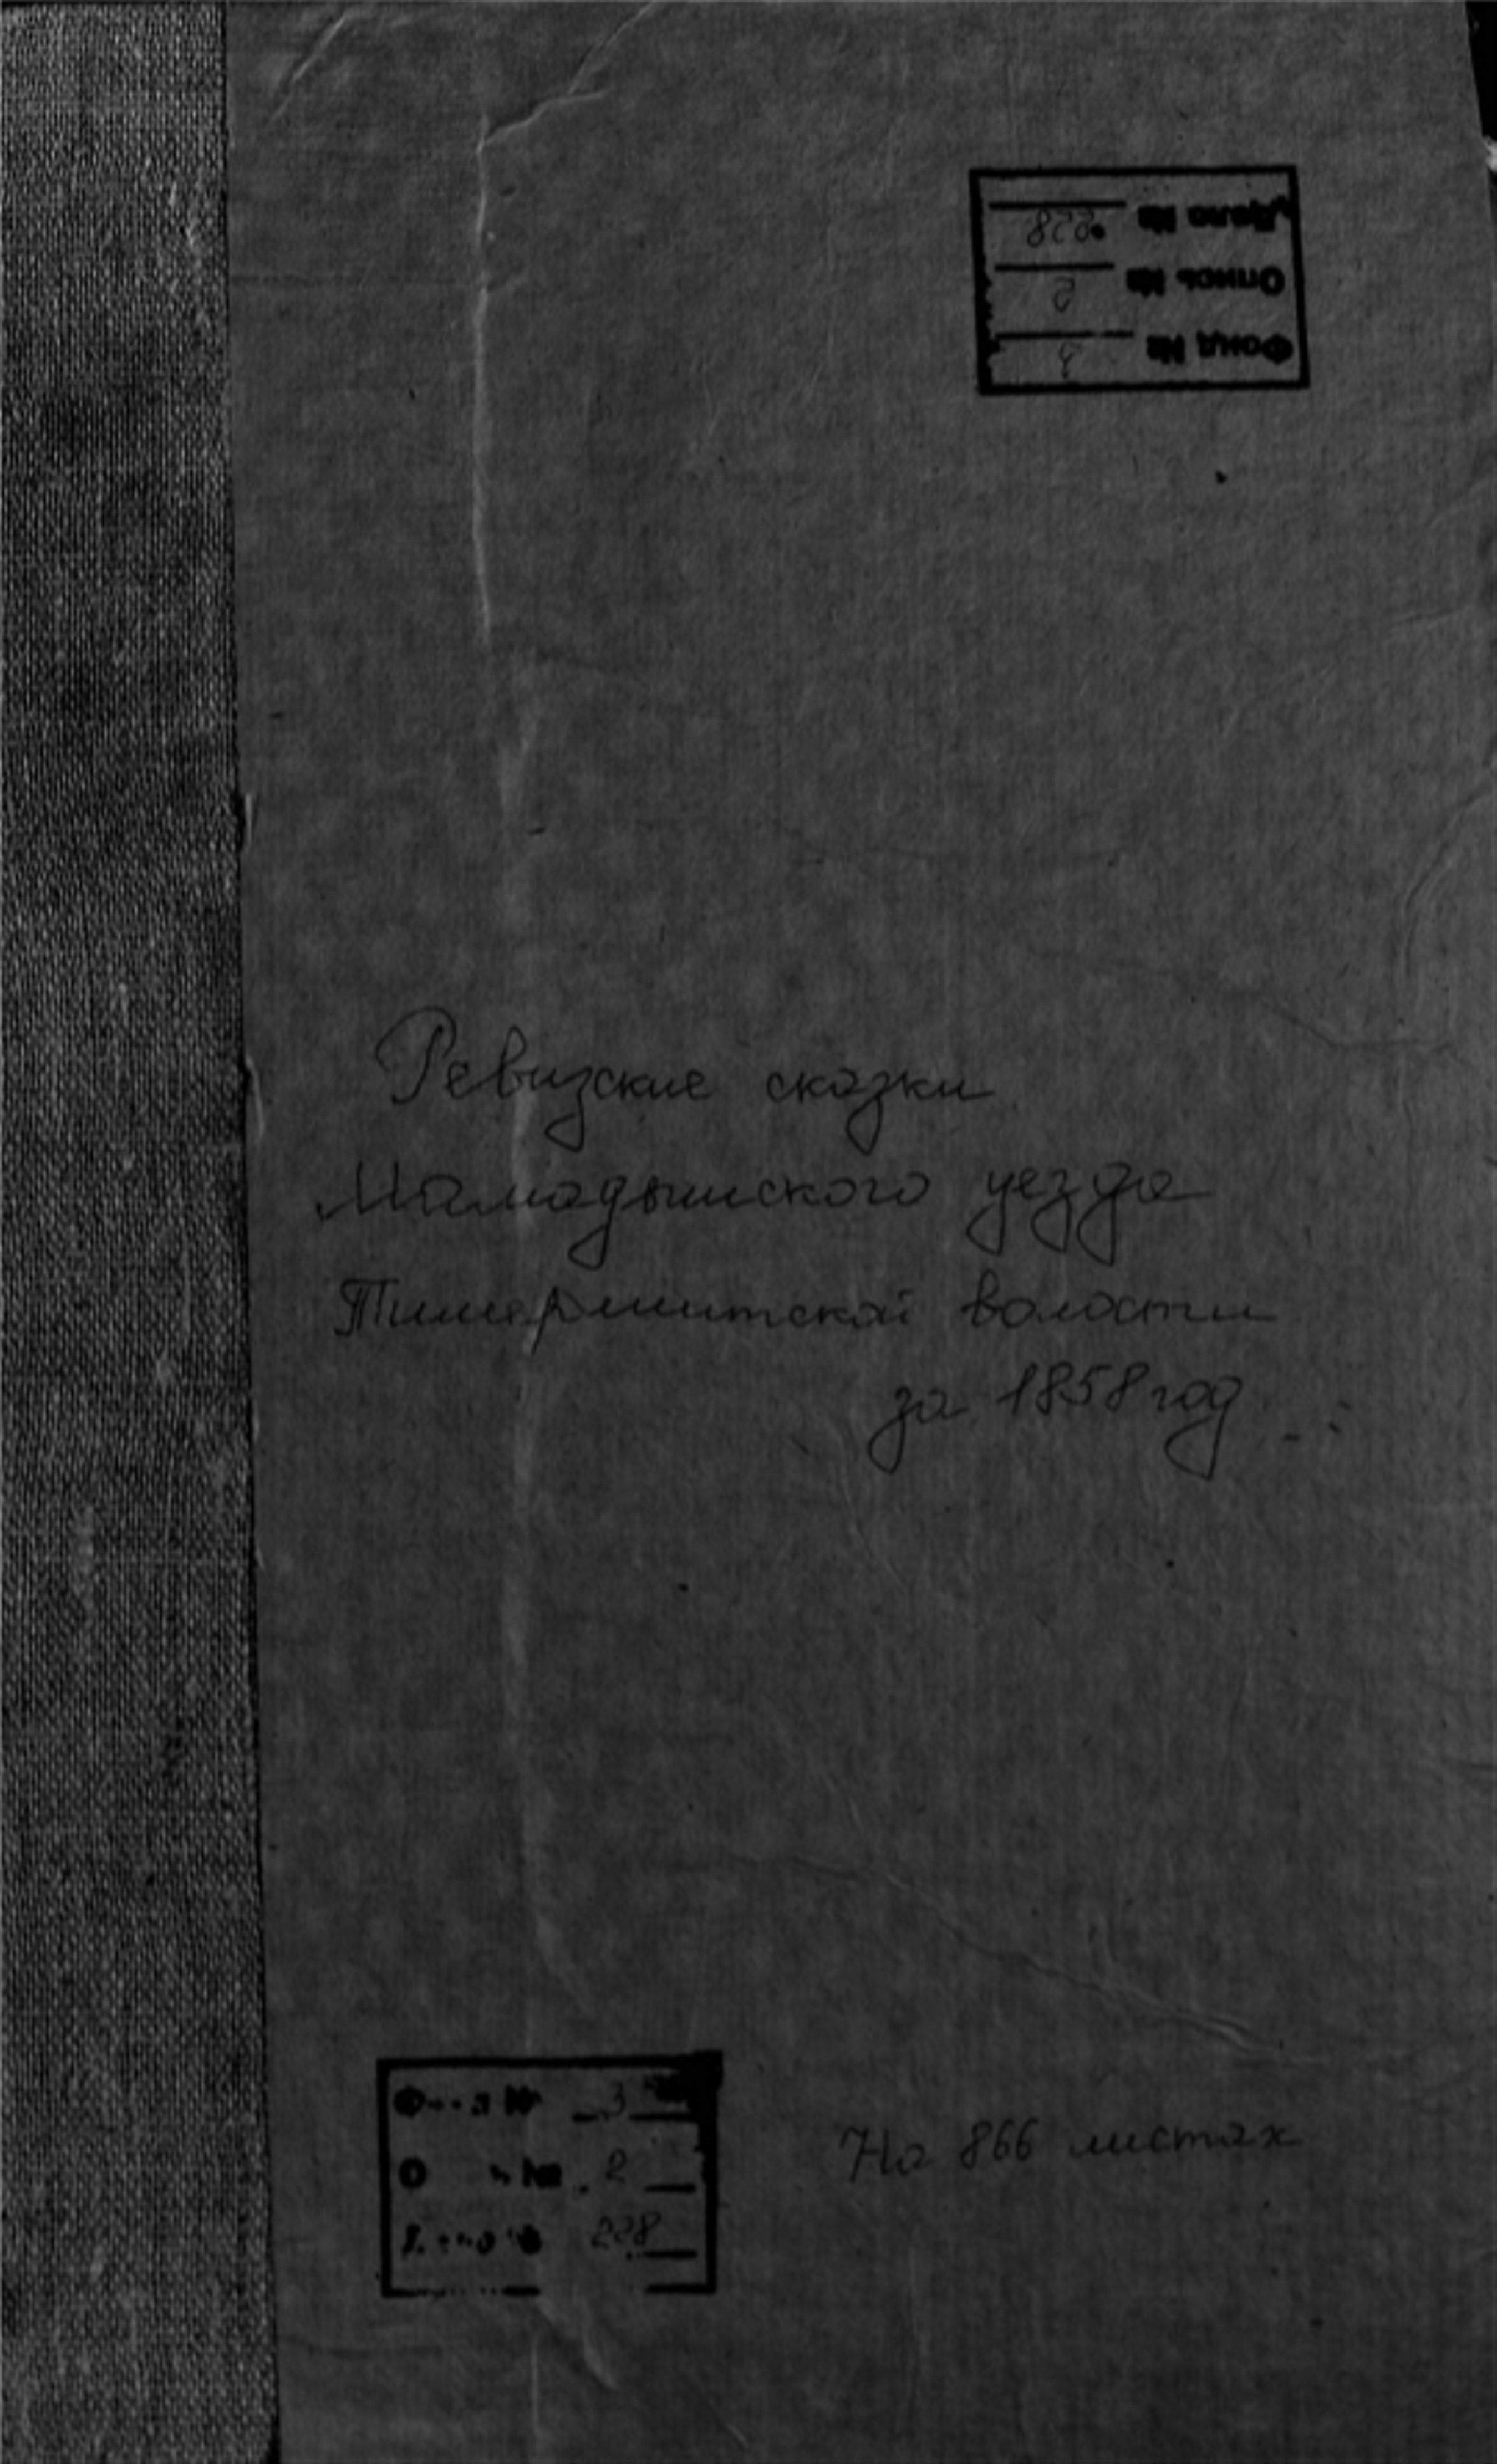 Дело № 228
Опись № 2
Фонд № 3
Ревизские сказки
Мамадышского уезда
Тимершитской волости
за 1858 год
№ 3
№ 2
228
На 866 листах